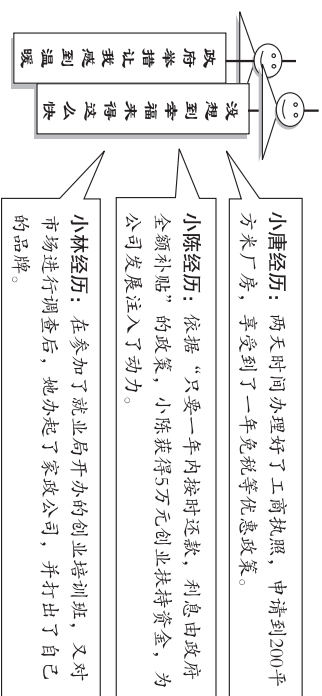 政府举措让我感到温暖
没想到幸福来得这么快
小唐经历：两天时间办理好了工商执照，申请到200平
方米厂房，享受到了一年免税等优惠政策。
小陈经历：依据“只要一年内按时还款，利息由政府
全额补贴”的政策，小陈获得5万元创业扶持资金，为
公司发展注入了动力。
小林经历：在参加了就业局开办的创业培训班，又对
市场进行调查后，她办起了家政公司，并打出了自己
的品牌。